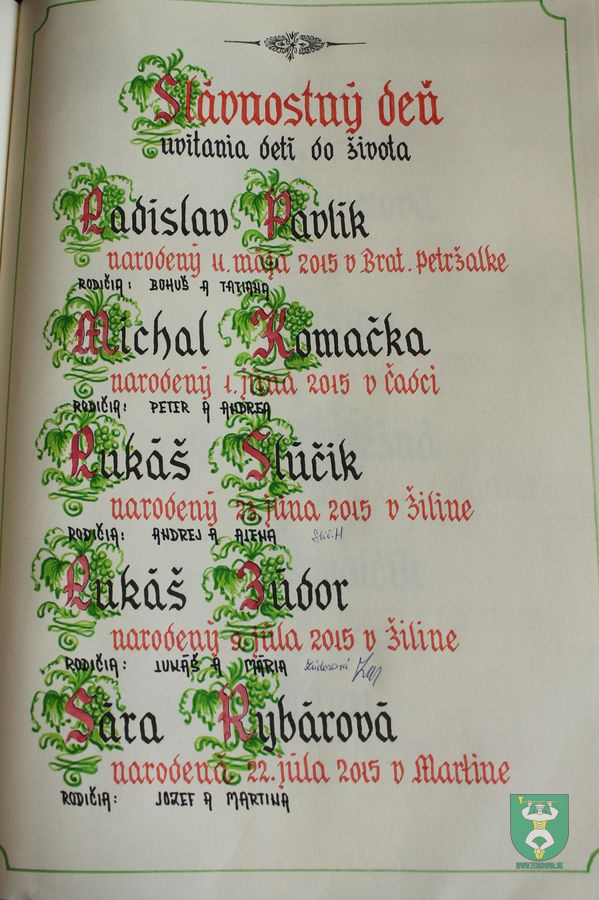 Slávnostný deň
uvítania detí do života
Ladislav Pavlík
narodený 11. mája 2015 v Brat. Petržalke
RODIČIA: BOHUŠ A TATIANA
Michal Komačka
narodený 1. júna 2015 v Čadci
RODIČIA: PETER A ANDREA
Lukáš Slúčik
narodený 23. júna 2015 v Žiline
RODIČIA: ANDREJ A ALENA
Lukáš Zúdor
narodený 9. júla 2015 v Žiline
RODIČIA: LUKÁŠ A MÁRIA Zúdorová
Sára Rybárová
narodená 22. júla 2015 v Martine
RODIČIA: JOZEF A MARTINA
WWW.TERCHOVA.SK